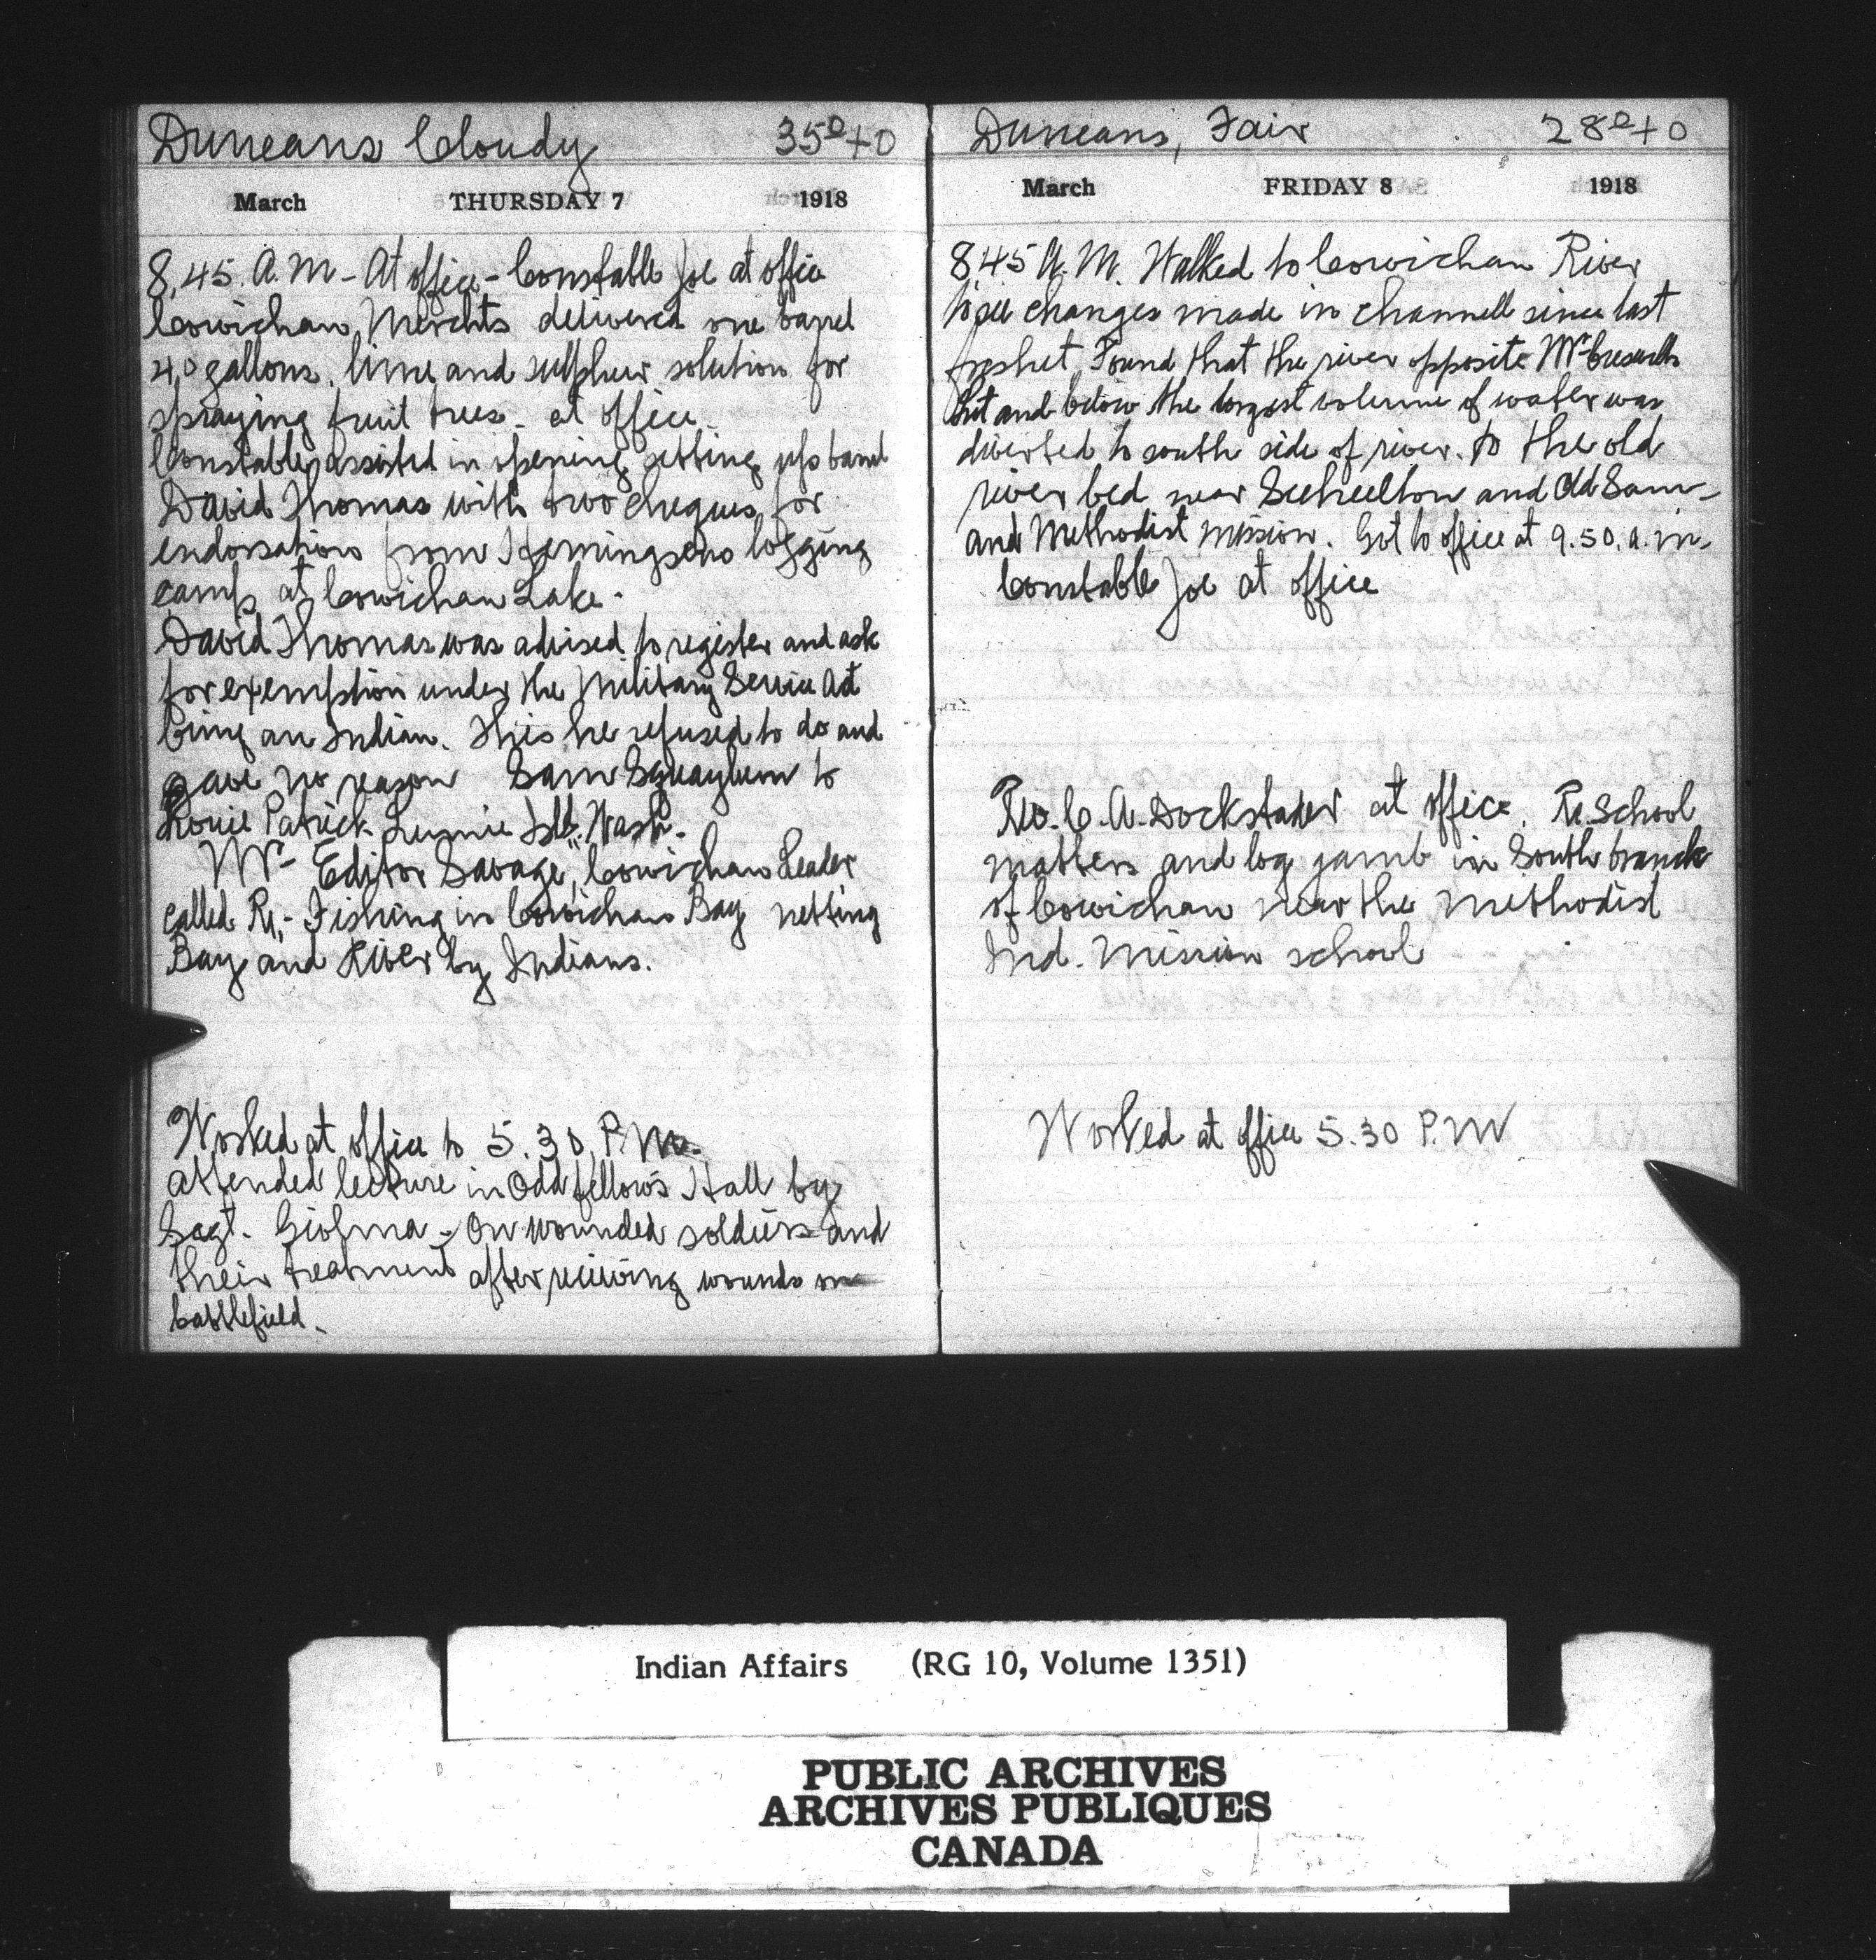 Duncans Cloudy 35º+0
March THURSDAY 7 1918
8.45. A.M - At office - Constable Joe at office
Cowichan Merchts delivered one barrel
40 gallons. lime and sulpher solution for
spraying fruit trees - at office.
Constable assisted in opening setting up barrel
David Thomas with two cheques for
endorsation from Hemingsens logging
camp at Cowichan Lake.
David Thomas was advised to register and ask
for exemption under the Military Service Act
being an Indian. This he refused to do and
gave no reason Sam to
Louie Patrick Isld. Wash.
Mr- Editor Savage, "Cowichan Leader
called Re,- Fishing in Cowichan Bay netting
Bay and River by Indians.
Worked at office to 5.30. P.M.
attended lecture in Oddfellow's Hall by
Sagt. Giolma - On wounded soldiers and
their treatment after reciving wounds on
battlefield.
Duncans, Fair 28º+0
March FRIDAY 8 1918
8.45 A.M. Walked to Cowichan River
to see changes made in channell since last
freshet. Found that the river opposite Mr
and below the largest volume of water was
diverted to south side of river. to the old
river bed near and Old Sam-
and Methodist Mission. Got to office at 9.50. a.m.
Constable Joe at office
Rev. C. A. Dockstader at office. Re. School
matters and log jamb in South branch
of Cowichan near the Methodist
Ind. Mission school
Worked at office 5.30 P.M
Indian Affairs (RG 10, Volume 1351)
PUBLIC ARCHIVES
ARCHIVES PUBLIQUES
CANADA